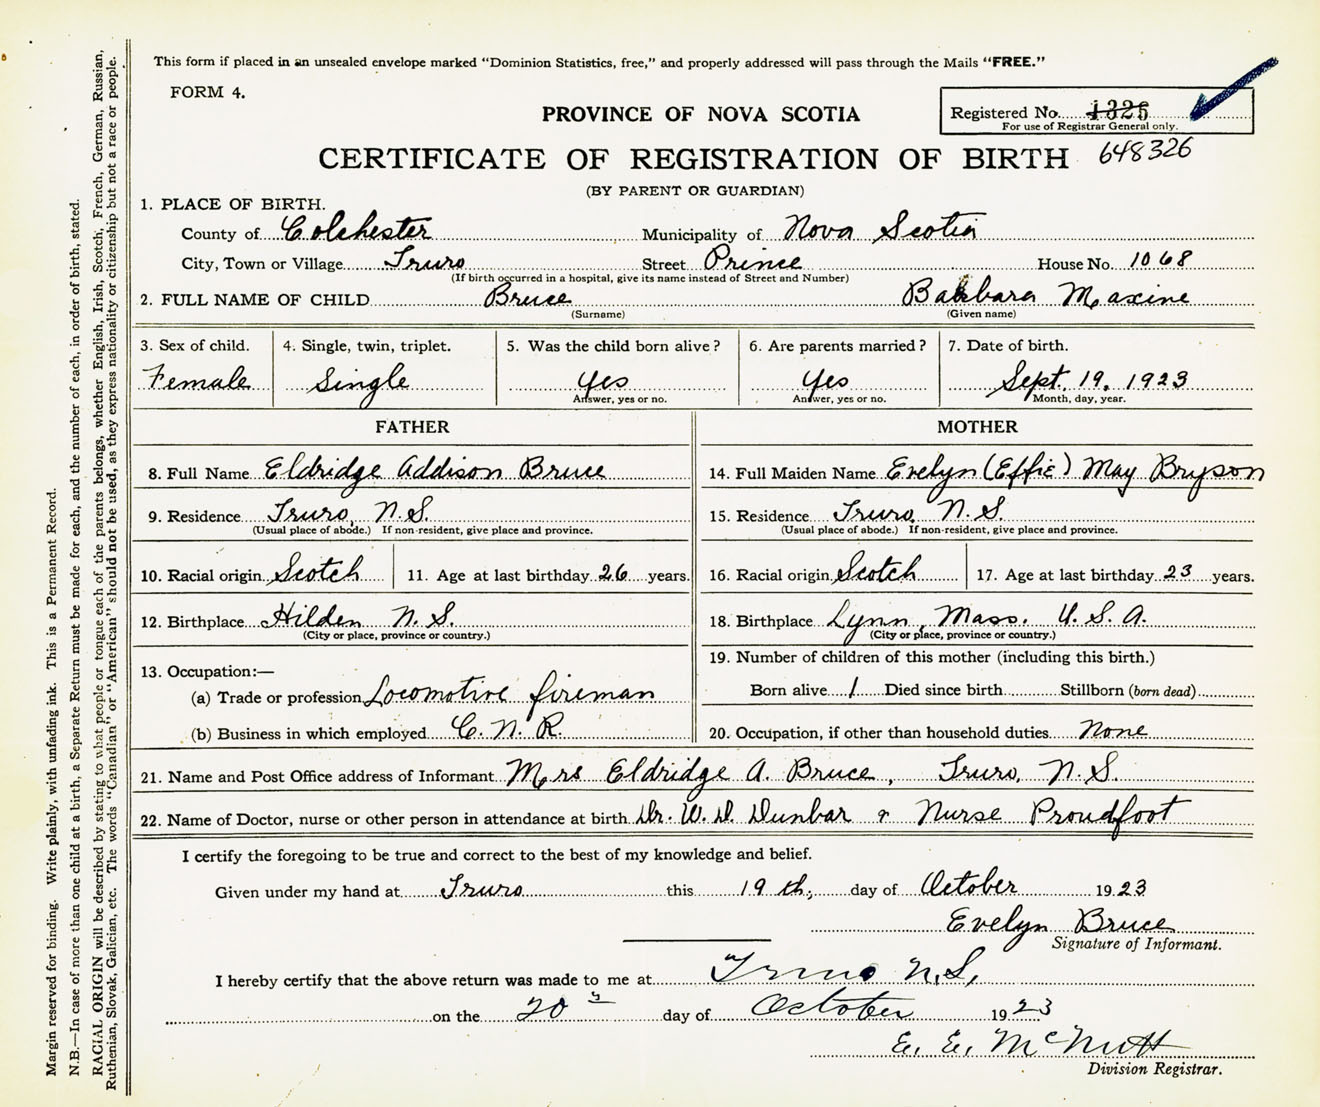 This form if placed in an unsealed envelope marked "Dominion Statistics, free," and properly addressed will pass through the Mails "FREE."
FORM 4.
PROVINCE OF NOVA SCOTIA
Registered No. 1326
For use of Registrar General only.
CERTIFICATE OF REGISTRATION OF BIRTH 648326
(BY PARENT OR GUARDIAN)
1. PLACE OF BIRTH.
County of Colchester Municipality of Nova Scotia
City, Town or Village Truro Street Prince House No. 1068
(If birth occurred in a hospital, give its name instead of Street and Number)
2. FULL NAME OF CHILD Bruce Barbara Maxine
(Surname) (Given name)
3. Sex of child. 4. Single, twin, triplet. 5. Was the child born alive? 6. Are parents married? 7. Date of birth.
Female Single Yes Yes Sept. 19, 1923
Answer, yes or no. Answer, yes or no. Month, day, year.
FATHER MOTHER
8. Full Name Eldridge Addison Bruce 14. Full Maiden Name Evelyn (Effie) May Bryson
9. Residence Truro, N.S. 15. Residence Truro, N.S.
(Usual place of abode.) If non-resident, give place and province. (Usual place of abode.) If non-resident, give place and province.
10. Racial origin Scotch 11. Age at last birthday 26 years. 16. Racial origin Scotch 17. Age at last birthday 23 years.
12. Birthplace Hilden N.S. 18. Birthplace Lynn, Mass. U.S.A.
(City or place, province or country.) (City or place, province or country.)
13. Occupation:— 19. Number of children of this mother (including this birth.)
(a) Trade or profession Locomotive fireman Born alive 1 Died since birth Stillborn (born dead)
(b) Business in which employed C.N.R. 20. Occupation, if other than household duties None
21. Name and Post Office address of Informant Mrs Eldridge A. Bruce, Truro, N.S.
22. Name of Doctor, nurse or other person in attendance at birth Dr. W. D. Dunbar & Nurse Proudfoot
I certify the foregoing to be true and correct to the best of my knowledge and belief.
Given under my hand at Truro this 19th, day of October 1923
Evelyn Bruce
Signature of Informant.
I hereby certify that the above return was made to me at Truro N.S.,
on the 20 day of October 1923
E. E. McNutt
Division Registrar.
Margin reserved for binding. Write plainly, with unfading ink. This is a Permanent Record.
N.B.—In case of more than one child at a birth, a Separate Return must be made for each, and the number of each, in order of birth, stated.
RACIAL ORIGIN will be described by stating to what people or tongue each of the parents belongs, whether English, Irish, Scotch, French, German, Russian,
Ruthenian, Slovak, Galician, etc. The words "Canadian" or "American" should not be used, as they express nationality or citizenship but not a race or people.